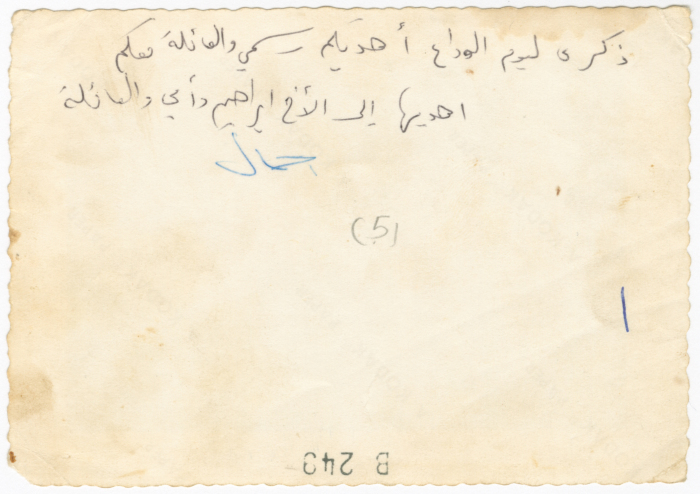 ذكرى ليوم الوداع. أهديكم رسمي والعائلة معكم
اهديها إلى الأخ ابراهيم وأمي والعائلة
جمال
(5)
B 243